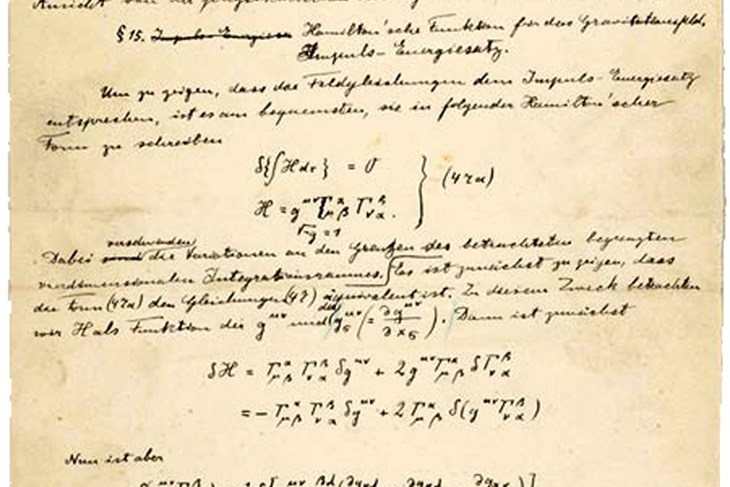 Ansicht von der
§15. Impuls-Energiesa Hamilton'sche Funktion für das Gravitationsfeld,
Impuls-Energiesatz.
Um zu zeigen, dass die Feldgleichungen dem Impuls-Energiesatz
entsprechen, ist es am bequemsten, sie in folgender Hamilton'scher
Form zu schreiben
δ{∫Hdτ} = 0
H = g^{μν} Γ^α_{μβ} Γ^β_{να}. } (47a)
√-g = 1
verschwinden
Dabei die Variationen an den Grenzen des betrachteten begrenzten
vierdimensionalen Integrationsraumes. Es ist zunächst zu zeigen, dass
die Form (47a) den Gleichungen (47) äquivalent ist. Zu diesem Zweck betrachten
wir H als Funktion der g^{μν} und der g^{μν}_σ (= ∂g^{μν}/∂x_σ). Dann ist zunächst
δH = Γ^α_{μβ} Γ^β_{να} δg^{μν} + 2g^{μν} Γ^α_{μβ} δΓ^β_{να}
= - Γ^α_{μβ} Γ^β_{να} δg^{μν} + 2 Γ^α_{μβ} δ(g^{μν} Γ^β_{να})
Nun ist aber